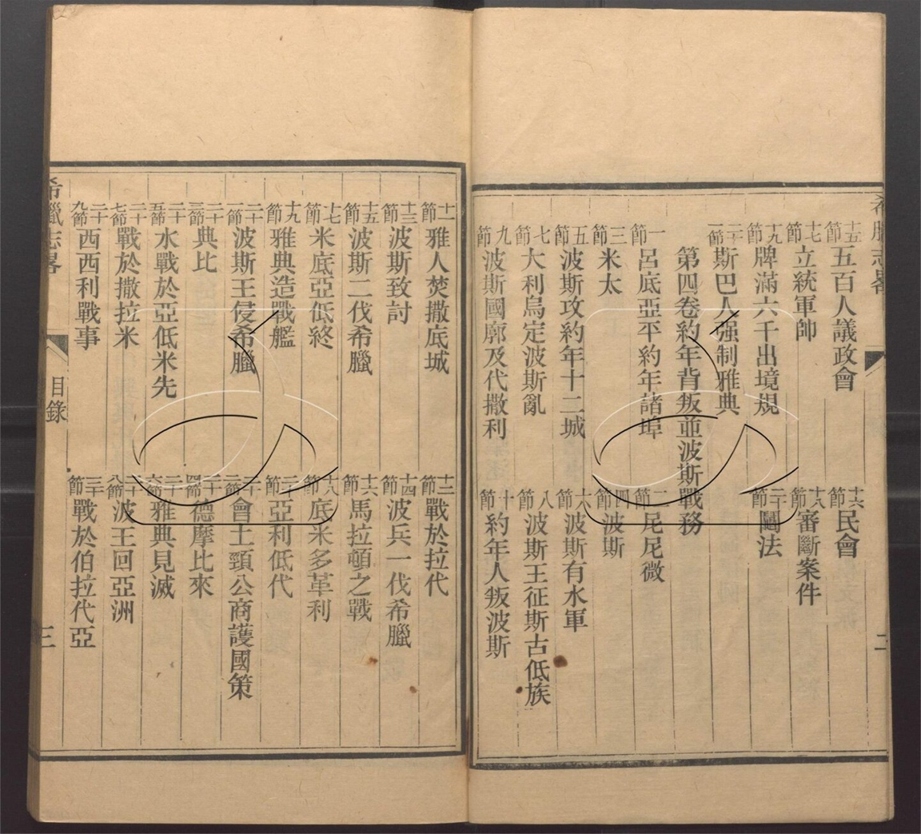 希臘志畧
十五節 五百人議政會 十六節 民會
十七節 立統軍帥 十八節 審斷案件
十九節 牌滿六千出境規 二十節 鬮法
二十一節 斯巴人强制雅典
第四卷約年背叛並波斯戰務
一節 呂底亞平約年諸埠 二節 尼尼微
三節 米太 四節 波斯
五節 波斯攻約年十二城 六節 波斯有水軍
七節 大利烏定波斯亂 八節 波斯王征斯古低族
九節 波斯國廓及代撒利 十節 約年人叛波斯
二
十一節 雅人焚撒底城 十二節 戰於拉代
十三節 波斯致討 十四節 波兵一伐希臘
十五節 波斯二伐希臘 十六節 馬拉頓之戰
十七節 米底亞低終 十八節 底米多革利
十九節 雅典造戰艦 二十節 亞利低代
二十一節 波斯王侵希臘 二十二節 會土頸公商護國策
二十三節 典比 二十四節 德摩比來
二十五節 水戰於亞低米先 二十六節 雅典見滅
二十七節 戰於撒拉米 二十八節 波王回亞洲
二十九節 西西利戰事 三十節 戰於伯拉代亞
希臘志畧 目錄 三